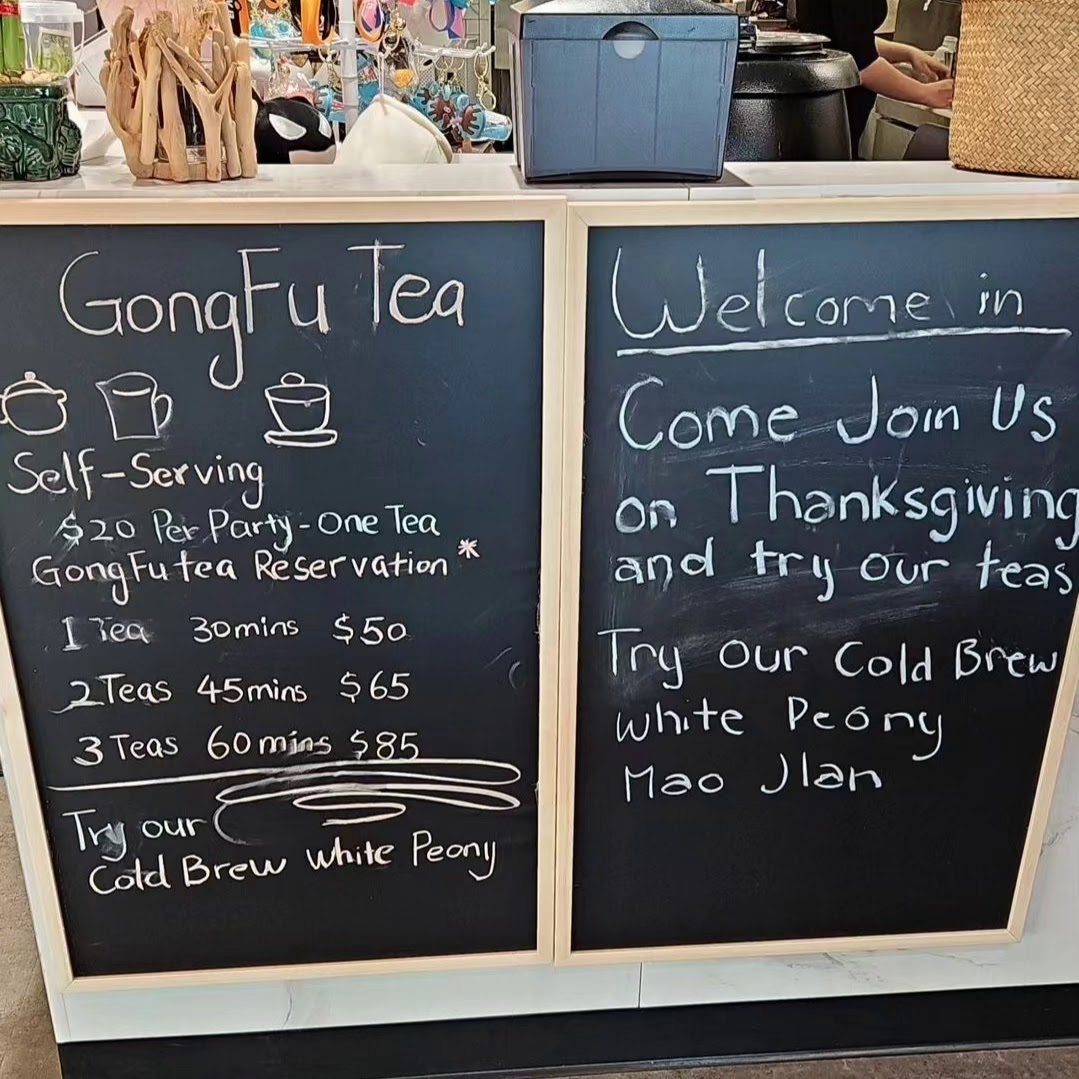 GongFu Tea
Self-Serving
$20 Per Party-One Tea
GongFutea Reservation*
1 Tea 30mins $50
2 Teas 45mins $65
3 Teas 60mins $85
Try our
Cold Brew White Peony
Welcome in
Come Join Us
on Thanksgiving
and try our teas
Try our Cold Brew
White Peony
Mao Jian